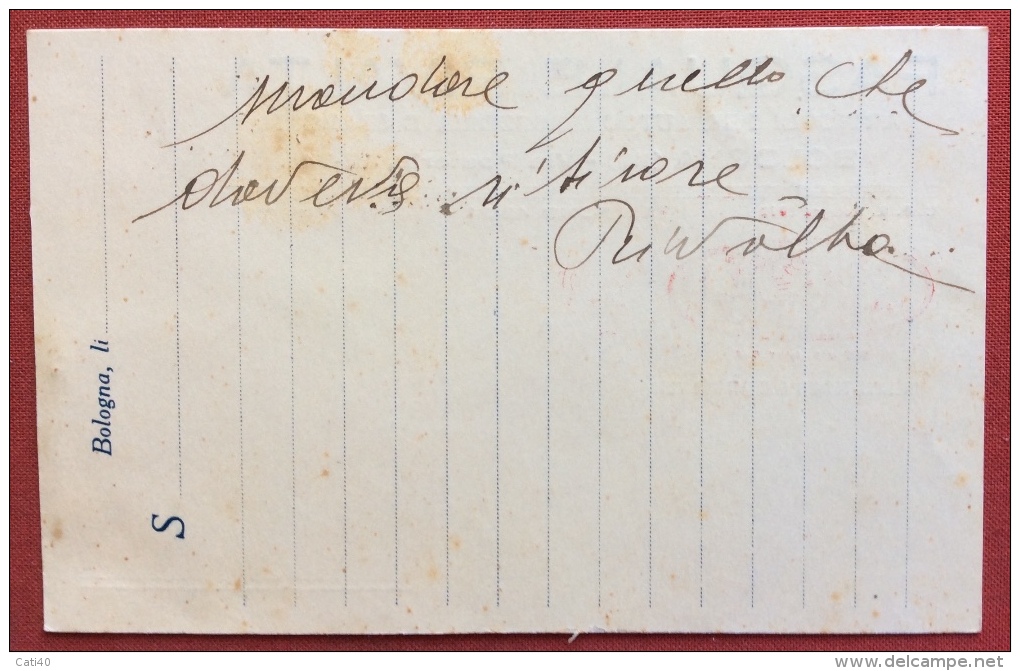 mandare quello che
doveva ritirare
Bologna, li
S
Cati40
delcampe.net